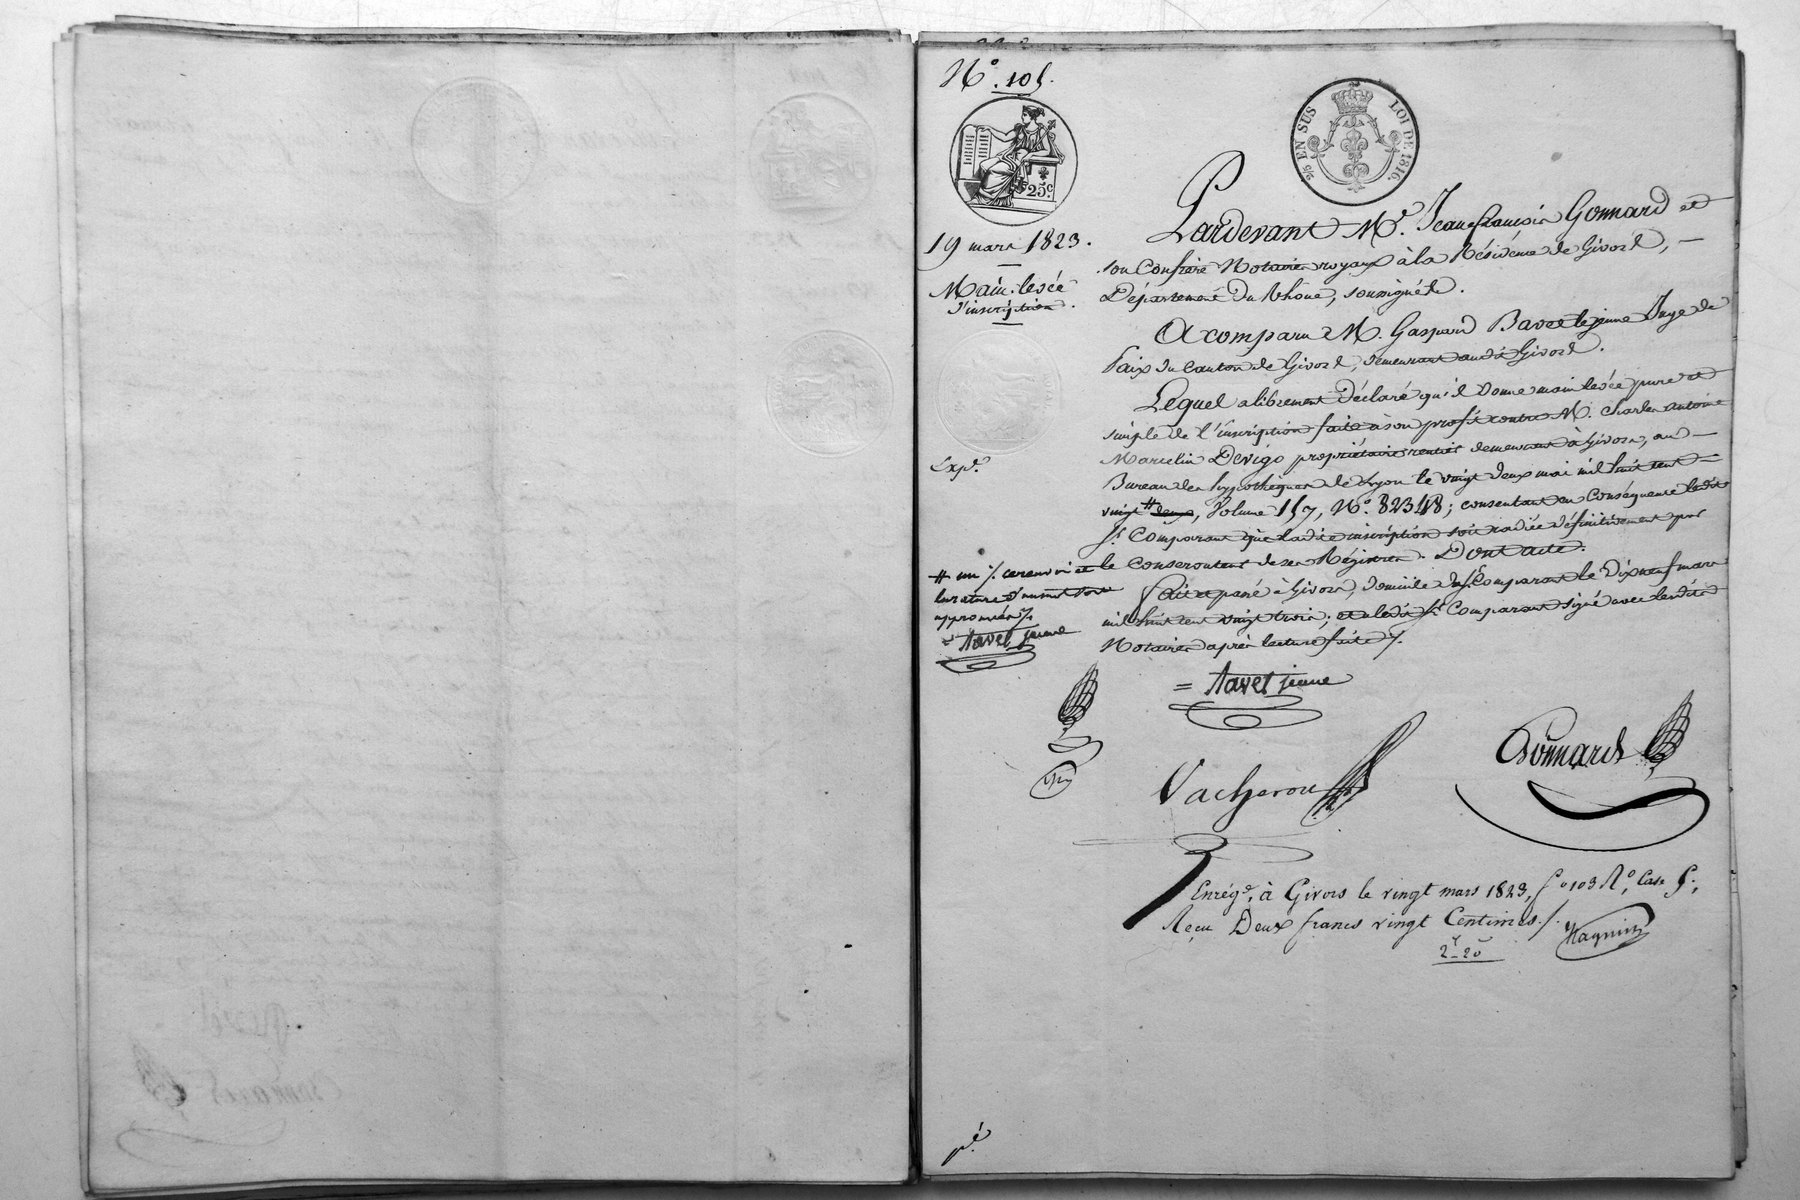 N.º 105.
25.c
2/5 EN SUS
LOI DE 1816.
19 mars 1823.
Main-levée
d'inscription.
Expé.
Pardevant M.e Jean françois Gonnard et
son Confrère Notaires royaux à la Résidence de Givors,
Département Du Rhône, soussignés.
A comparu M. Gaspard Ravet le jeune Juge de
Paix du Canton de Givors, demeurant audit Givors.
Lequel a librement Déclaré qu'il Donne main levée pure et
simple de l'inscription faite à son profit contre M. Charles antoine
Marcelin Devigo propriétaire rentier demeurant à Givors, au
Bureau des hypothèques de Lyon le vingt deux mai mil huit cent
vingt # deux, Volume 157, N.º 82348; consentant en Conséquence ledit
S.r Comparant que ladite inscription soit radiée définitivement par
le Conservateur de ses Régistres. Dont acte.
fait et passé à Givors, domicile du S.r Comparant le Dix neuf mars
mil huit cent vingt trois; et a ledit S.r Comparant signé avec lesdits
Notaires après lecture faite ./.
# un ./. ce renvoi et
la rature d'un mot sont
approuvés ./.
= Ravet jeune
= Ravet jeune
Vacheron
Gonnard
Enrég.é à Givors le vingt mars 1823, f.o 103 R.o, Case 5.,
Reçu Deux francs vingt Centimes ./.
Magnin
2f 20